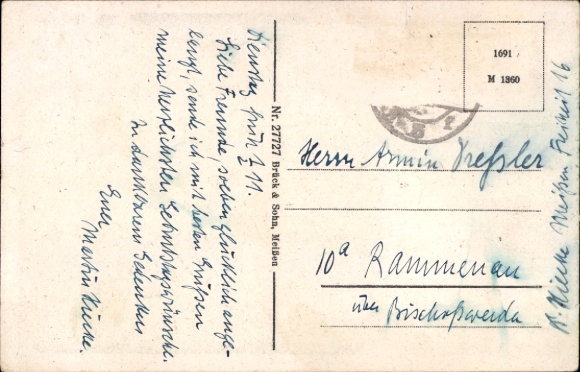 Dienstag früh ½ 11.
Liebe Freunde, soeben glücklich ange-
langt, sende ich mit besten Grüßen
meine herzlichsten Geburtstagswünsche.
In dankbarem Gedenken
Euer
Martin
Nr. 27727 Brück & Sohn, Meißen
1691
M 1360
Herrn Armin Dreßler
10a Rammenau
über Bischofswerda
Meißen Freiheit 16